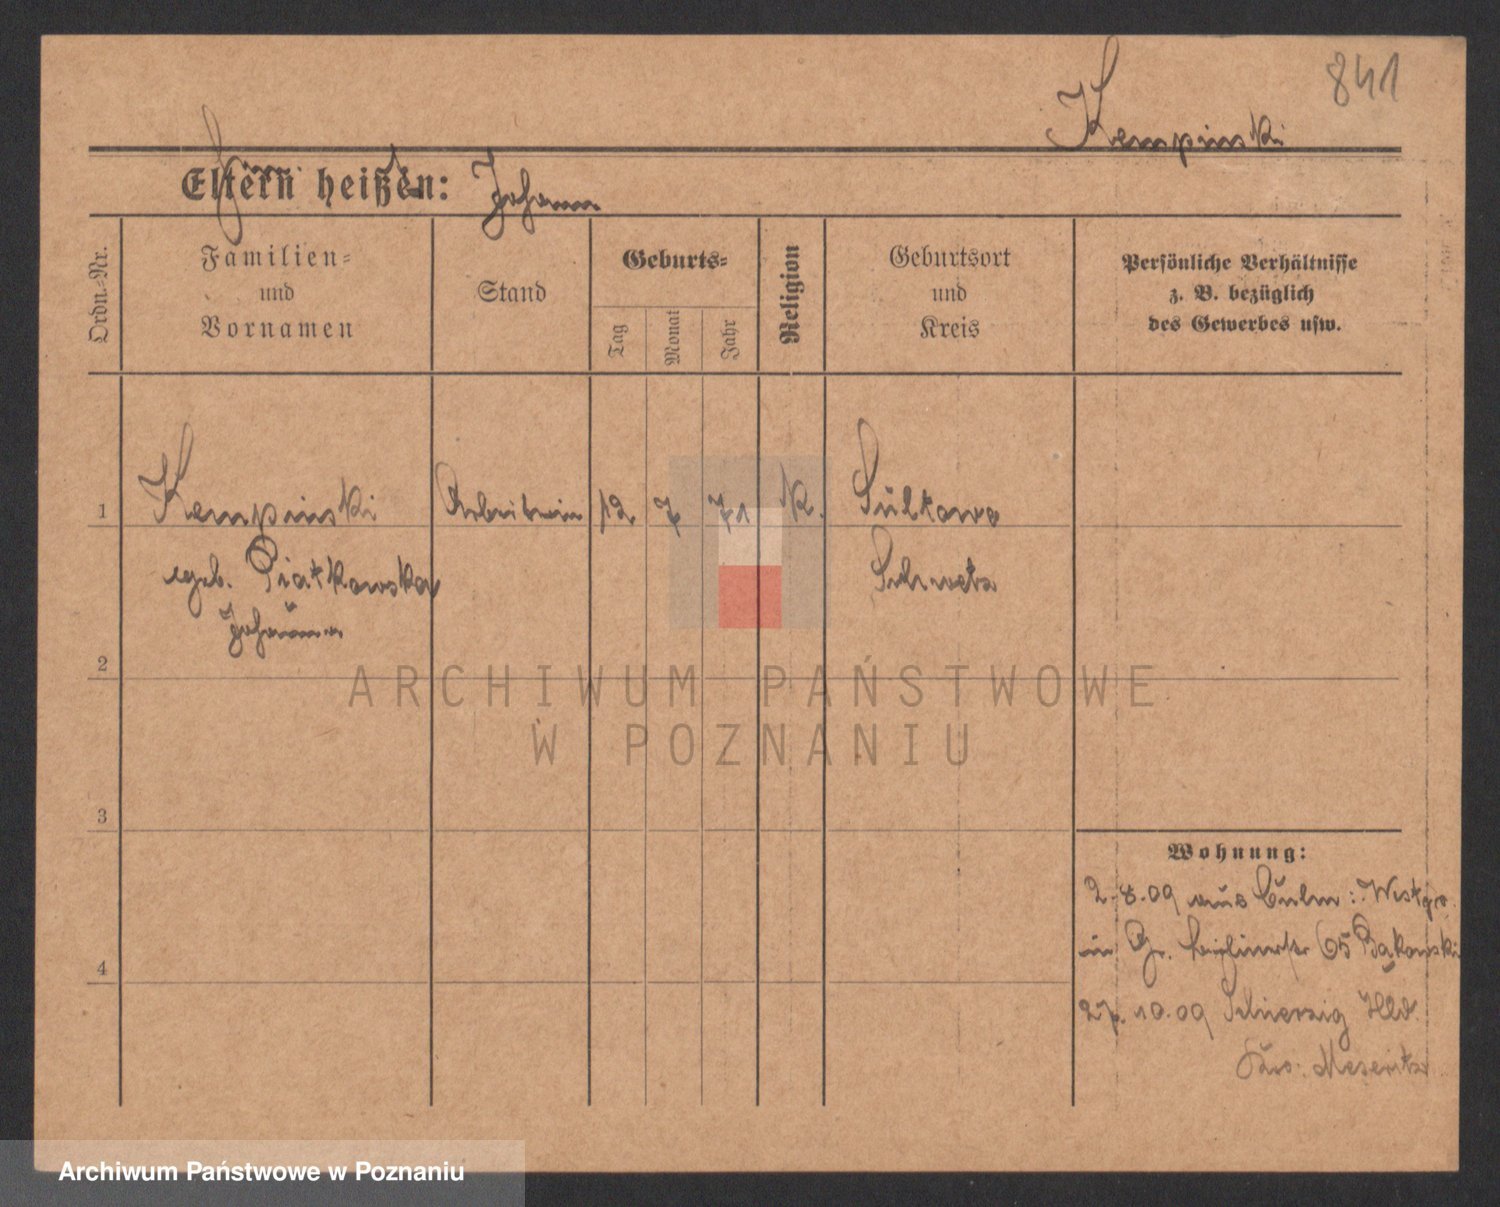 841
Kempinski
Eltern heißen: Johann
Ordn.-Nr.
Familien-
und
Vornamen
Stand
Geburts-
Tag
Monat
Jahr
Religion
Geburtsort
und
Kreis
Persönliche Verhältnisse
z. B. bezüglich
des Gewerbes usw.
1 Kempinski Arbeiterin 12 7 71 K. Sulkowo
geb. Piatkowska Schwetz
Johanna
2
ARCHIWUM PAŃSTWOWE
W POZNANIU
3
Wohnung:
2.8.09 aus Culm: Westpr.
in Gr. 65 Bąkowski
4
27.10.09 Schierzig Hld.
Krs. Meseritz
Archiwum Państwowe w Poznaniu